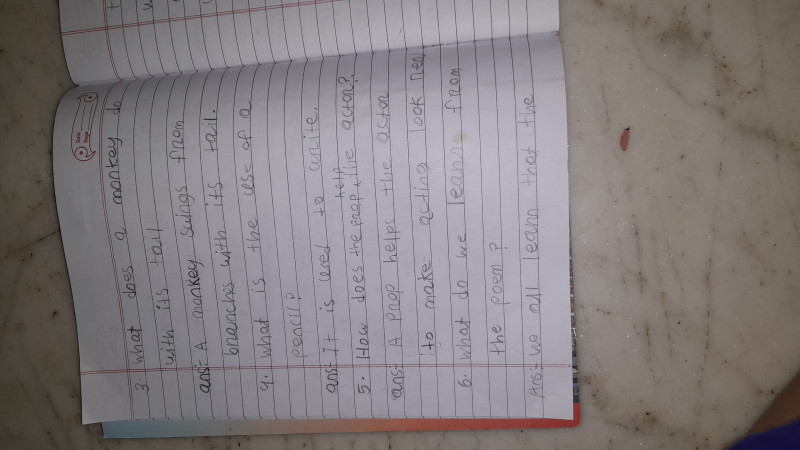 Date
Page
3. What does a monkey do
with its tail
ans:- A monkey swings from
branches with its tail.
4. What is the use of a
pencil?
ans:- It is used to write.
5. How does the prop help the actor?
ans:- A prop helps the actor
to make acting look
6. What do we learn from
the poem?
Ans:- we all learn that the